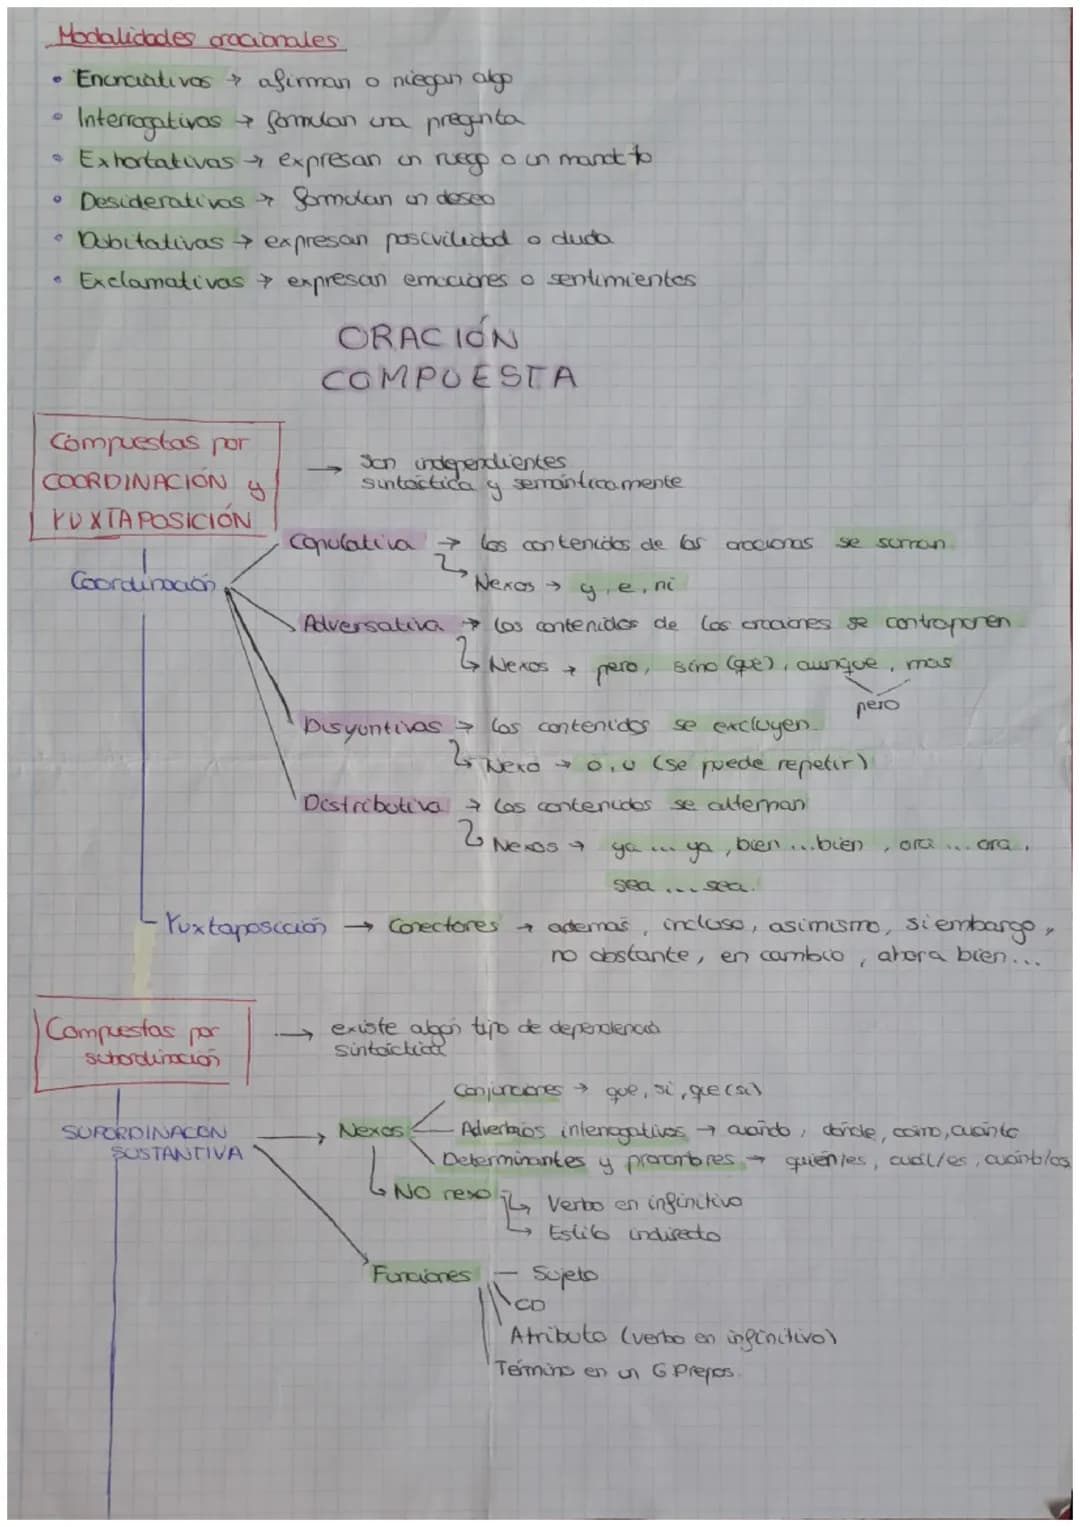 Modalidades oracionales
• Enunciativas → afirman o niegan algo
• Interrogativas → formulan una pregunta
• Exhortativas → expresan un ruego o un mandato
• Desiderativas → formulan un deseo
• Dubitativas → expresan posivilidad o duda
• Exclamativas → expresan emociones o sentimientos
ORACIÓN
COMPUESTA
Compuestas por
COORDINACIÓN y
YUXTAPOSICIÓN
→ Son independientes
sintáctica y semánticamente
Coordinación
Copulativa → los contenidos de las oraciones se suman
Nexos → y, e, ni
Adversativa → los contenidos de las oraciones se contraponen
Nexos → pero, sino (que), aunque, mas
pero
Disyuntivas → los contenidos se excluyen
Nexo → o, u (se puede repetir)
Distributiva → los contenidos se alternan
Nexos → ya ... ya, bien ... bien, ora ... ora,
sea ... sea.
Yuxtaposición → Conectores → además, incluso, asimismo, si embargo,
no obstante, en cambio, ahora bien...
Compuestas por
subordinación
→ existe algún tipo de dependencia
sintáctica
SUBORDINACON
SUSTANTIVA
→ Nexos
Conjunciones → que, si, que (si)
Adverbios interrogativos → cuándo, dónde, cómo, cuánto
Determinantes y pronombres → quién/es, cuál/es, cuánto/os
NO nexo
→ Verbo en infinitivo
→ Estilo indirecto
Funciones — Sujeto
CD
Atributo (verbo en infinitivo)
Término en un G.Prepos.